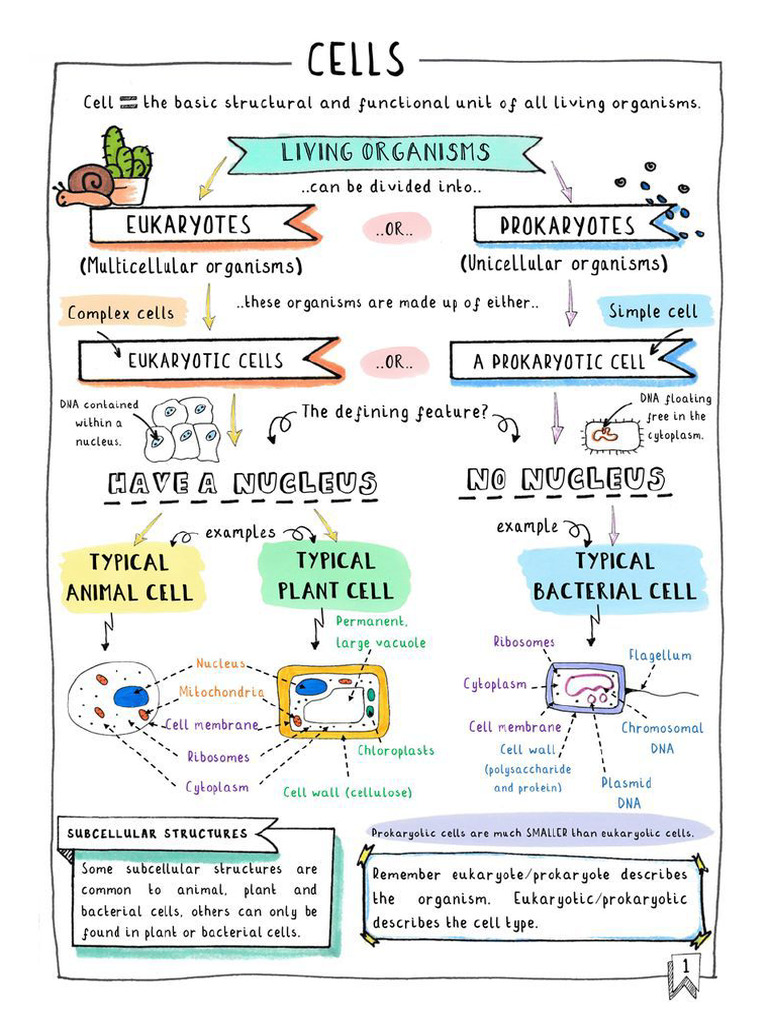 CELLS
Cell = the basic structural and functional unit of all living organisms.
LIVING ORGANISMS
..can be divided into..
EUKARYOTES
..OR..
PROKARYOTES
(Multicellular organisms)
(Unicellular organisms)
Complex cells
..these organisms are made up of either..
Simple cell
EUKARYOTIC CELLS
..OR..
A PROKARYOTIC CELL
DNA contained
within a
nucleus.
The defining feature?
DNA floating
free in the
cytoplasm.
HAVE A NUCLEUS
NO NUCLEUS
examples
example
TYPICAL
ANIMAL CELL
TYPICAL
PLANT CELL
TYPICAL
BACTERIAL CELL
Permanent,
large vacuole
Nucleus
Mitochondria
Cell membrane
Ribosomes
Cytoplasm
Chloroplasts
Cell wall (cellulose)
Ribosomes
Flagellum
Cytoplasm
Cell membrane
Cell wall
(polysaccharide
and protein)
Chromosomal
DNA
Plasmid
DNA
SUBCELLULAR STRUCTURES
Some subcellular structures are
common to animal, plant and
bacterial cells, others can only be
found in plant or bacterial cells.
Prokaryotic cells are much SMALLER than eukaryotic cells.
Remember eukaryote/prokaryote describes
the organism. Eukaryotic/prokaryotic
describes the cell type.
1